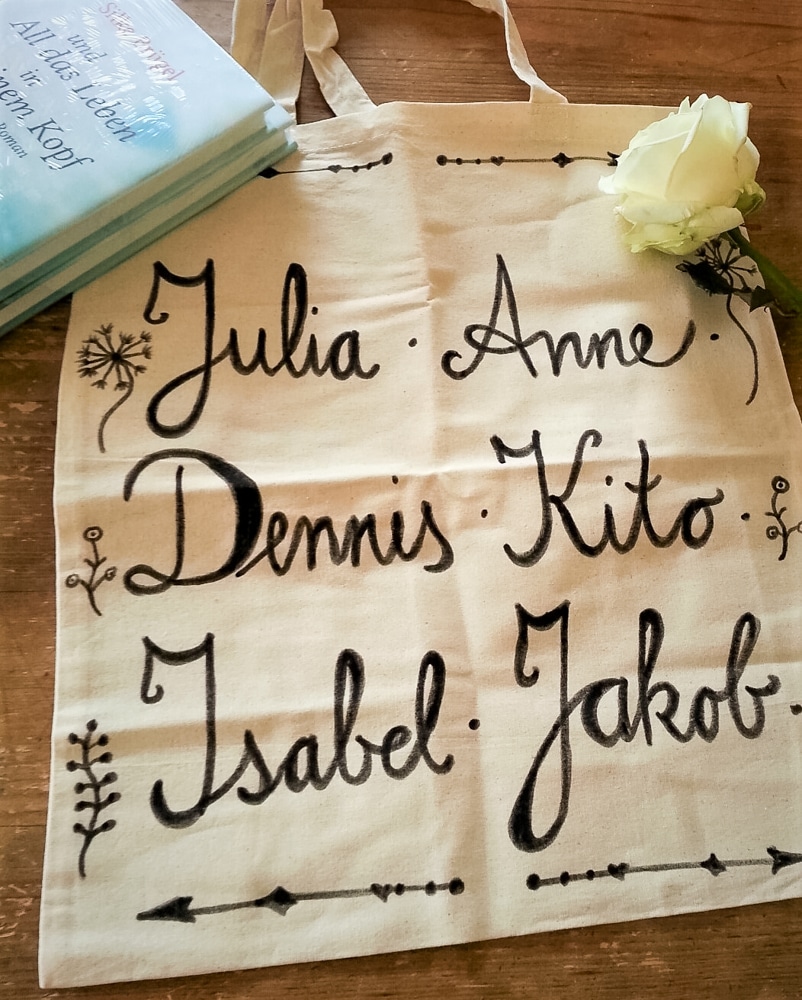 und
All das Leben
in
inem Kopf
Roman
Julia · Anne ·
Dennis · Kito ·
Isabel · Jakob ·